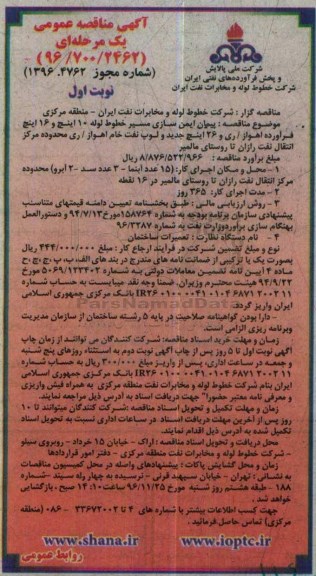 آگهی مناقصه عمومی
یک مرحله‌ای
(۹۶/۷۰۰/۲۴۶۲)
(شماره مجوز ۱۳۹۶،۴۷۶۲)
نوبت اول
شرکت ملی پالایش
و پخش فرآورده‌های نفتی ایران
شرکت خطوط لوله و مخابرات نفت ایران
مناقصه گزار : شرکت خطوط لوله و مخابرات نفت ایران - منطقه مرکزی
موضوع مناقصه : پیمان ایمن سازی مسیر خطوط لوله ۱۰ اینچ و ۱۶ اینچ
فرآورده اهواز / ری و ۲۶ اینچ جدید و لوپ نفت خام اهواز / ری محدوده مرکز
انتقال نفت رازان تا روستای مالمیر
مبلغ برآورد مناقصه : ۸/۸۷۶/۵۲۲/۹۶۶ ریال
۱ - محل و مکان اجرای کار: (۱۵ عدد آبنما - ۳ عدد سد - ۲ آبرو) محدوده
مرکز انتقال نفت رازان تا روستای مالمیر در ۱۶ نقطه
۲ - مدت اجرای کار: ۳۶۵ روز
۳ - روش ارزیابی مالی : طبق بخشنامه تعیین دامنه قیمتهای متناسب
پیشنهادی سازمان برنامه بودجه به شماره ۱۵۸۷۶۴ مورخ ۹۴/۷/۱۳ و دستورالعمل
بهنگام سازی برآورد وزارت نفت به شماره ۹۶/۳۲۸۷
۴ - نام دستگاه نظارت : تعمیرات ساختمان
نوع و مبلغ تضمین شرکت در فرآیند ارجاع کار : مبلغ ۴۴۴/۰۰۰/۰۰۰ ریال
بصورت یک یا ترکیبی از ضمانت نامه های مندرج در بند های الف، ب، پ، ج، چ، ح
ماده ۴ آیین نامه تضمین معاملات دولتی به شماره ۱۲۳۴۰۲/ت۵۰۶۵۹ مورخ
۹۴/۹/۲۲ هیئت محترم وزیران، ضمنا وجه نقد میبایست به حساب شماره
بانک مرکزی جمهوری اسلامی
ایران واریز گردد.
- دارا بودن گواهینامه صلاحیت در پایه ۵ رشته ساختمان از سازمان مدیریت
وبرنامه ریزی الزامی است.
زمان و مهلت خرید اسناد مناقصه: شرکت کنندگان می توانند از زمان چاپ
آگهی نوبت اول تا ۵ روز پس از چاپ آگهی نوبت دوم به استثناء روزهای پنج شنبه
و جمعه در ساعت اداری، پس از واریز مبلغ ۳۰۰/۰۰۰ ریال به حساب شماره
بانک مرکزی جمهوری اسلامی
ایران بنام شرکت خطوط لوله و مخابرات نفت منطقه مرکزی به همراه فیش واریزی
و معرفی نامه معتبر حضورا" جهت دریافت اسناد به آدرس ذیل مراجعه نمایند.
زمان و مهلت تکمیل و تحویل اسناد مناقصه :شرکت کنندگان میتوانند تا ۱۰
روز پس از آخرین مهلت دریافت اسناد در ساعات اداری نسبت به تحویل اسناد
تکمیل شده به آدرس ذیل اقدام نمایند.
محل دریافت و تحویل اسناد مناقصه : اراک - خیابان ۱۵ خرداد - روبروی سیلو
- شرکت خطوط لوله و مخابرات نفت منطقه مرکزی - دفتر امور قراردادها
زمان و محل گشایش پاکات : پیشنهادهای واصله در محل کمیسیون مناقصات
به نشانی : تهران - خیابان سپهبد قرنی - نرسیده به چهار راه سپند - شماره
۱۸۸ - طبقه هشتم روز شنبه مورخ ۹۶/۱۱/۲۵ ساعت ۱۴:۱۰ صبح ، بازگشایی
خواهد شد .
جهت کسب اطلاعات بیشتر با شماره های ۴ تا ۳۳۶۷۲۰۰۲ - ۰۸۶ (منطقه
مرکزی) تماس حاصل فرمائید .
www.shana.ir
www.ioptc.ir
روابط عمومی